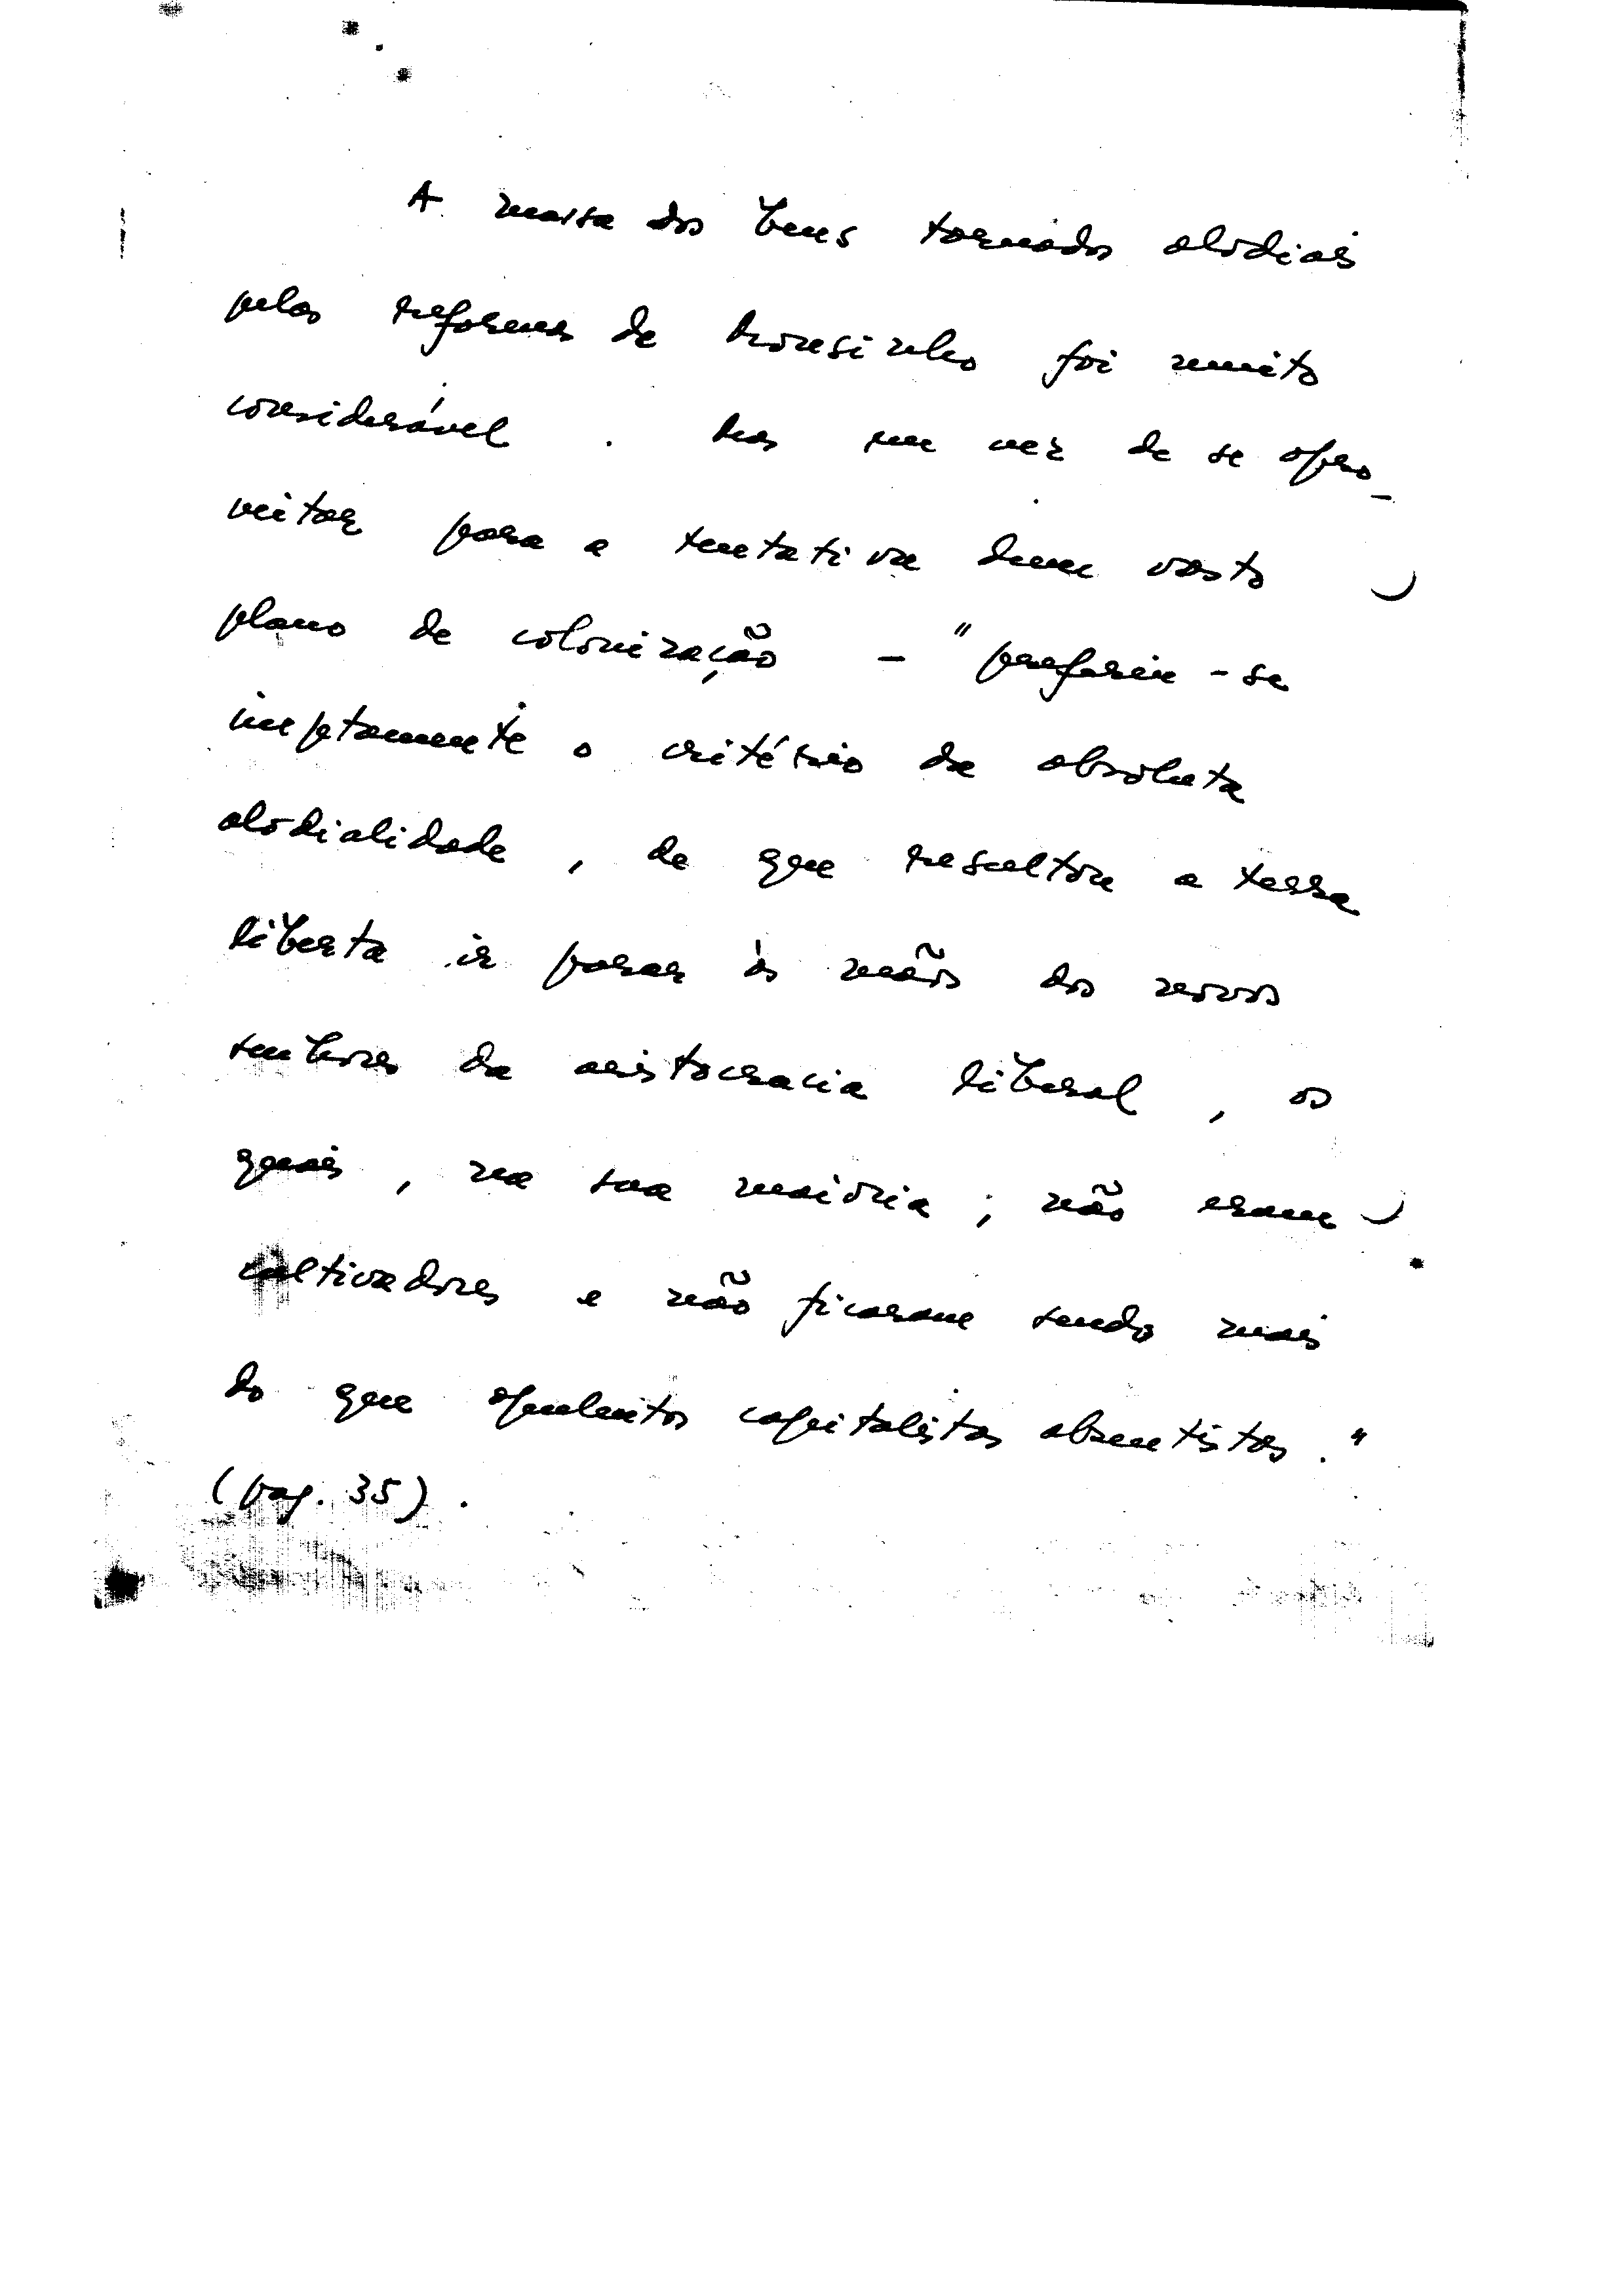 A massa dos bens tornados alodiais
pelas reformas de Mousinho foi muito
considerável. Mas em vez de se apro-
veitar para a tentativa dum vasto
plano de colonização - "preferiu-se
ineptamente o critério da absoluta
alodialidade, de que resultou a terra
liberta ir parar às mãos dos novos
senhores da aristocracia liberal, os
quais, na sua maioria; não eram
cultivadores e não ficaram sendo mais
do que opulentos capitalistas absentistas."
(pag. 35).